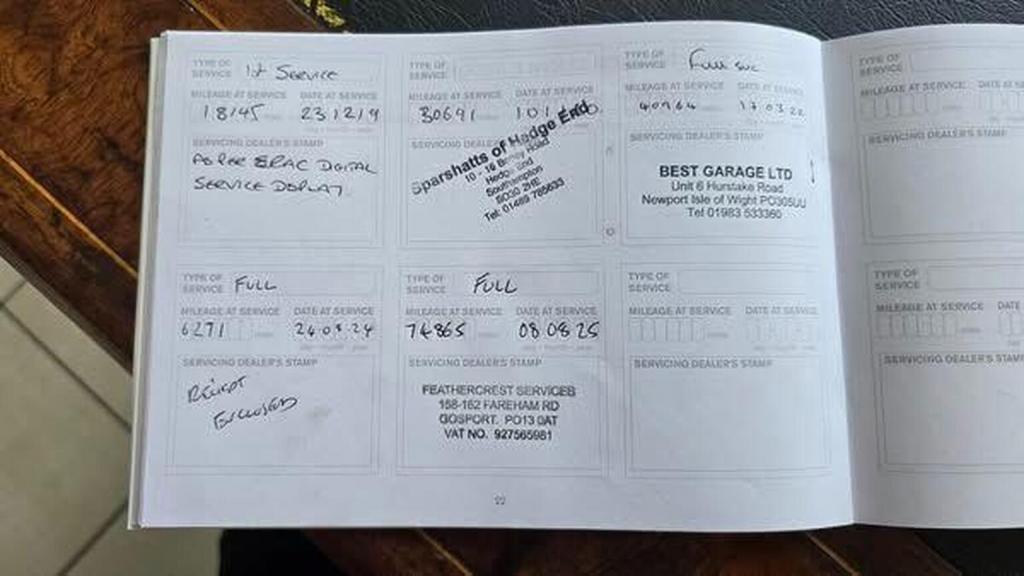 TYPE OF SERVICE 1st Service
MILEAGE AT SERVICE DATE AT SERVICE
18145 231219
SERVICING DEALER'S STAMP
AS PER ERAC DIGITAL
SERVICE DISPLAY
TYPE OF SERVICE
MILEAGE AT SERVICE DATE AT SERVICE
30691
SERVICING DEALER'S
Sparshatts of Hedge End
10 - 16
Hedge End
Southampton
SO30 2HE
Tel: 01489 785633
TYPE OF SERVICE Full svc
MILEAGE AT SERVICE DATE AT SERVICE
40964 17 03 22
SERVICING DEALER'S STAMP
BEST GARAGE LTD
Unit 6 Hurstake Road
Newport Isle of Wight PO305UU
Tel 01983 533360
TYPE OF SERVICE FULL
MILEAGE AT SERVICE DATE AT SERVICE
6271
SERVICING DEALER'S STAMP
RECIEPT
ENCLOSED
TYPE OF SERVICE FULL
MILEAGE AT SERVICE DATE AT SERVICE
74865 08 08 25
SERVICING DEALER'S STAMP
FEATHERCREST SERVICES
158-162 FAREHAM RD
GOSPORT. PO13 0AT
VAT NO. 927565981
TYPE OF SERVICE
MILEAGE AT SERVICE DATE AT SERVICE
SERVICING DEALER'S STAMP
TYPE OF SERVICE
MILEAGE AT SERVICE DATE A
SERVICING DEALER'S STAMP
TYPE OF SERVICE
MILEAGE AT SERVICE DATE
SERVICING DEALER'S STAMP
22